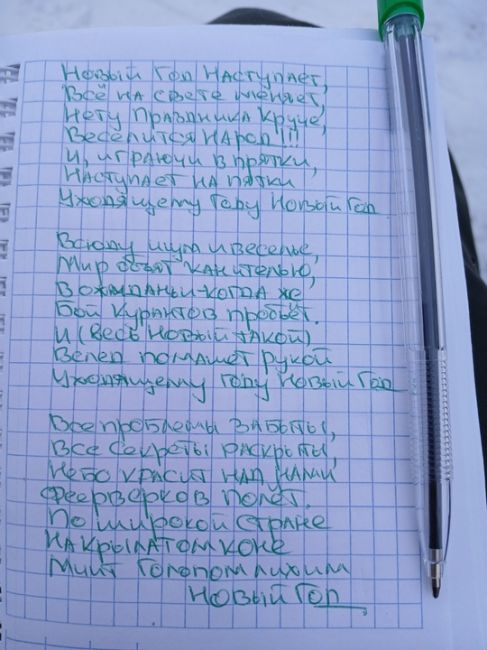 Новый Год наступает,
Всё на свете меняет,
Нету праздника круче,
Веселится народ!!!
И, играючи в прятки,
Наступает на пятки
Уходящему Году Новый Год
Всюду шум и веселье,
Мир объят канителью,
В ожидании когда же
Бой Курантов пробьёт.
И (весь новый такой)
Вслед помашет рукой
Уходящему Году Новый Год
Все проблемы забыты,
Все секреты раскрыты,
Небо красит над нами
Фейерверков полёт.
По широкой стране
На крылатом коне
Мчит галопом лихим
Новый Год